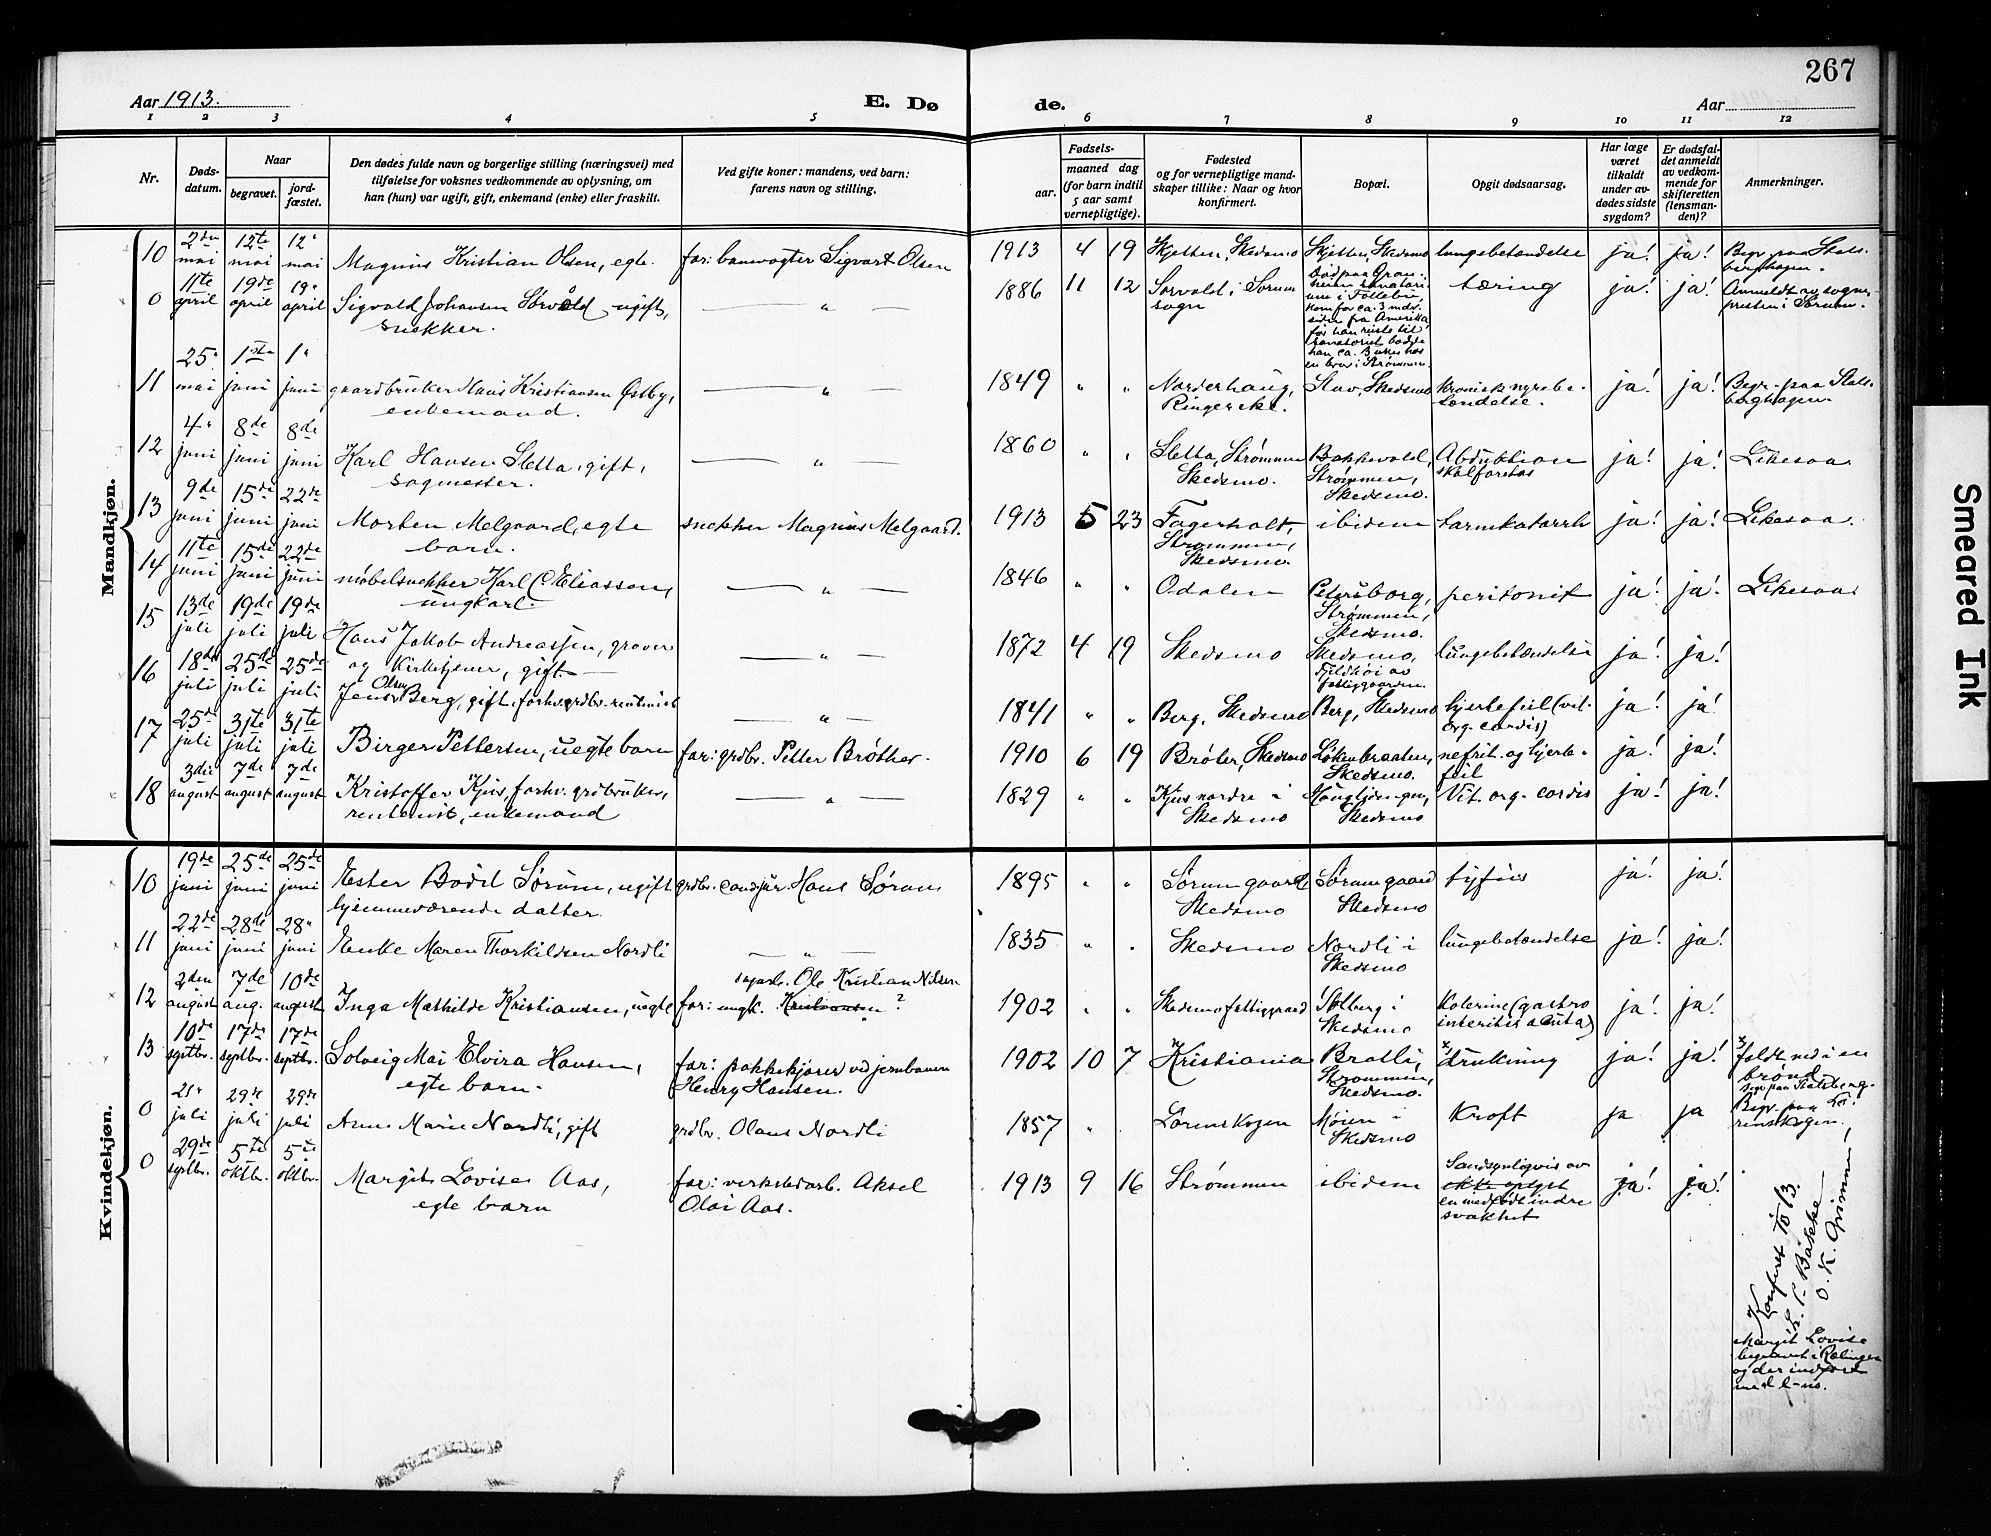 267
Aar 1913.
E. Dø
de.
Aar
1 2 3 4 5 6 7 8 9 10 11 12
Nr.
Døds-
datum.
Naar
begravet.
jord-
fæstet.
Den dødes fulde navn og borgerlige stilling (næringsvei) med
tilføielse for voksnes vedkommende av oplysning, om
han (hun) var ugift, gift, enkemand (enke) eller fraskilt.
Ved gifte koner: mandens, ved barn:
farens navn og stilling.
Fødsels-
aar.
maaned dag
(for barn indtil
5 aar samt
vernepligtige).
Fødested
og for vernepligtige mand-
skaper tillike: Naar og hvor
konfirmert.
Bopæl.
Opgit dødsaarsag.
Har læge
været
tilkaldt
under av-
dødes sidste
sygdom?
Er dødsfal-
det anmeldt
av vedkom-
mende for
skifteretten
(lensman-
den)?
Anmerkninger.
Mandkjøn.
10 2den mai 12te mai 12" mai Magnus Kristian Olsen, egte. far: banevogter Sigvart Olsen 1913 4 19 Skjetten, Skedsmo Skjetten, Skedsmo lungebetændelse ja! ja! Begr. paa Stals-
berghagen.
0 11te april 19de april 19" april Sigvald Johansen Sørvald ugift, — " — 1886 11 12 Sorvald i Sørum tæring ja! ja! Anmeldt av sogne-
snekker. sogn presten i Sørum.
Død paa Gran-
heim sanatori-
um i Follebu,
kom for ca. 3 mdr.
siden fra Amerika
før han reiste til
sanatoriet bodde
han ca. 3 uker hos
en bror i Strømmen.
11 25" mai 1ste juni 1" juni gaardbruker Hans Kristiansen Østby, — " — 1849 " " Norderhaug, Stav, Skedsmo kronisk nyrebe- ja! ja! Begr. paa Stals-
enkemand. Ringerike. tændelse. berghagen.
12 4" juni 8de juni 8de juni Karl Hansen Sletta, gift, — " — 1860 " " Sletta, Strømmen Bakkevold, ja! ja! Likesaa.
sagmester. Skedsmo. Strømmen,
Skedsmo.
13 9de juni 15de juni 22de juni Morten Melgaard, egte snekker Magnus Melgaard. 1913 5 23 Fagerholt, ibidem tarmkatarrh ja! ja! Likesaa.
barn. Strømmen,
Skedsmo.
14 11te juni 15de juni 22de juni møbelsnekker Karl C. Eliassen, — " — 1846 " " Odalen Petersborg, peritonit ja! ja! Likesaa.
ungkar. Strømmen,
Skedsmo.
15 13de juli 19de juli 19de juli Hans Jakob Andreassen, graver — " — 1872 4 19 Skedsmo Skedsmo, lungebetændelse ja! ja!
og kirketjener, gift
fattiggaarden.
16 18de juli 25de juli 25de juli Jens Olsen Berg, gift, forhv. grdbr. rentenist — " — 1841 " " Berg, Skedsmo Berg, Skedsmo hjertefeil (vit. ja! ja!
org. cordis)
17 25de juli 31te juli 31te juli Birger Pettersen, uegte barn far: grdbr. Petter Brøther. 1910 6 19 Brøter, Skedsmo Løkenbraaten, nefrit. og hjerte- ja! ja!
Skedsmo. feil
18 3die august 7de august 7de august Kristoffer Kjus, forhv. grdbruker, — " — 1829 " " Kjus nordre i Vit. org. cordis ja! ja!
rentenist, enkemand Skedsmo Skedsmo
Kvindekjøn.
10 19de juni 25de juni 25de juni Ester Bodil Sørum, ugift grdbr. cand. jur. Hans Sørum 1895 " " Sørum gaard Sørum gaard tyfus ja! ja!
hjemmeværende datter. Skedsmo Skedsmo
11 22de juni 28de juni 28" juni Enke Maren Thorkildsen Nordli — " — 1835 " " Skedsmo Nordli i lungebetændelse ja! ja!
Skedsmo
Ole Kristian Nilsen
12 2den august 7de aug. 10de august Inga Mathilde Kristiansen, uegte far: ungk. Kristiansen? 1902 " " Skedsmo fattiggaard Solberg i kolerine (gastro ja! ja!
Skedsmo interitis acuta)
13 10de septbr. 17de septbr. 17de septbr. Solveig Mai Elvira Hansen, far: pakkekjører ved jernbanen 1902 10 7 Kristiania Bratli, x) drukning ja! ja! x) faldt ned i en
egte barn. Henry Hansen. Strømmen, brønd.
Skedsmo. Begr. paa Stalsberg-
0 21" juli 29de juli 29de juli Anne Marie Nordli, gift grdbr. Olaus Nordli 1857 " Lørenskogen Møien i Kræft ja ja Begr. paa Lø-
Skedsmo renskogen.
0 29de septbr. 5te oktbr. 5te oktbr. Margit Lovise Aas, far: verkstedarb. Aksel 1913 9 16 Strømmen ibidem Sandsynligvis av ja! ja!
egte barn Olai Aas. ikke oplyst
en medfødt indre
svakhet
Konferet
Bakke
O. K. Grimm
Margit Lovise
begravet i Rælingen
og der indført
med l-no.
Smeared Ink